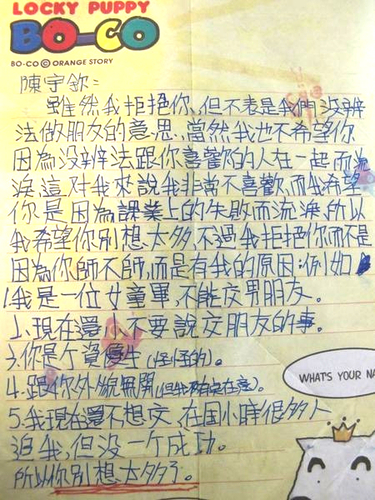 LOCKY PUPPY
BO-CO
BO-CO © ORANGE STORY
陳宇欽：
雖然我拒絕你，但不表是我們沒辦
法做朋友的意思，當然我也不希望你
因為沒辦法跟你喜歡的人在一起而流
淚這對我來說我非常不喜歡，而我希望
你是因為課業上的失敗而流淚，所以
我希望你別想太多，不過我拒絕你而不是
因為你師不師，而是有我的原因：例如
1.我是一位女童軍，不能交男朋友。
2.現在還小不要說交朋友的事。
3.你是个資優生(怪怪的)。
4.跟你外貌無關(但我有在意)。
5.我現在還不想交，在国小時很多人
追我，但没一个成功。
所以你別想太多了。
WHAT'S YOUR NA